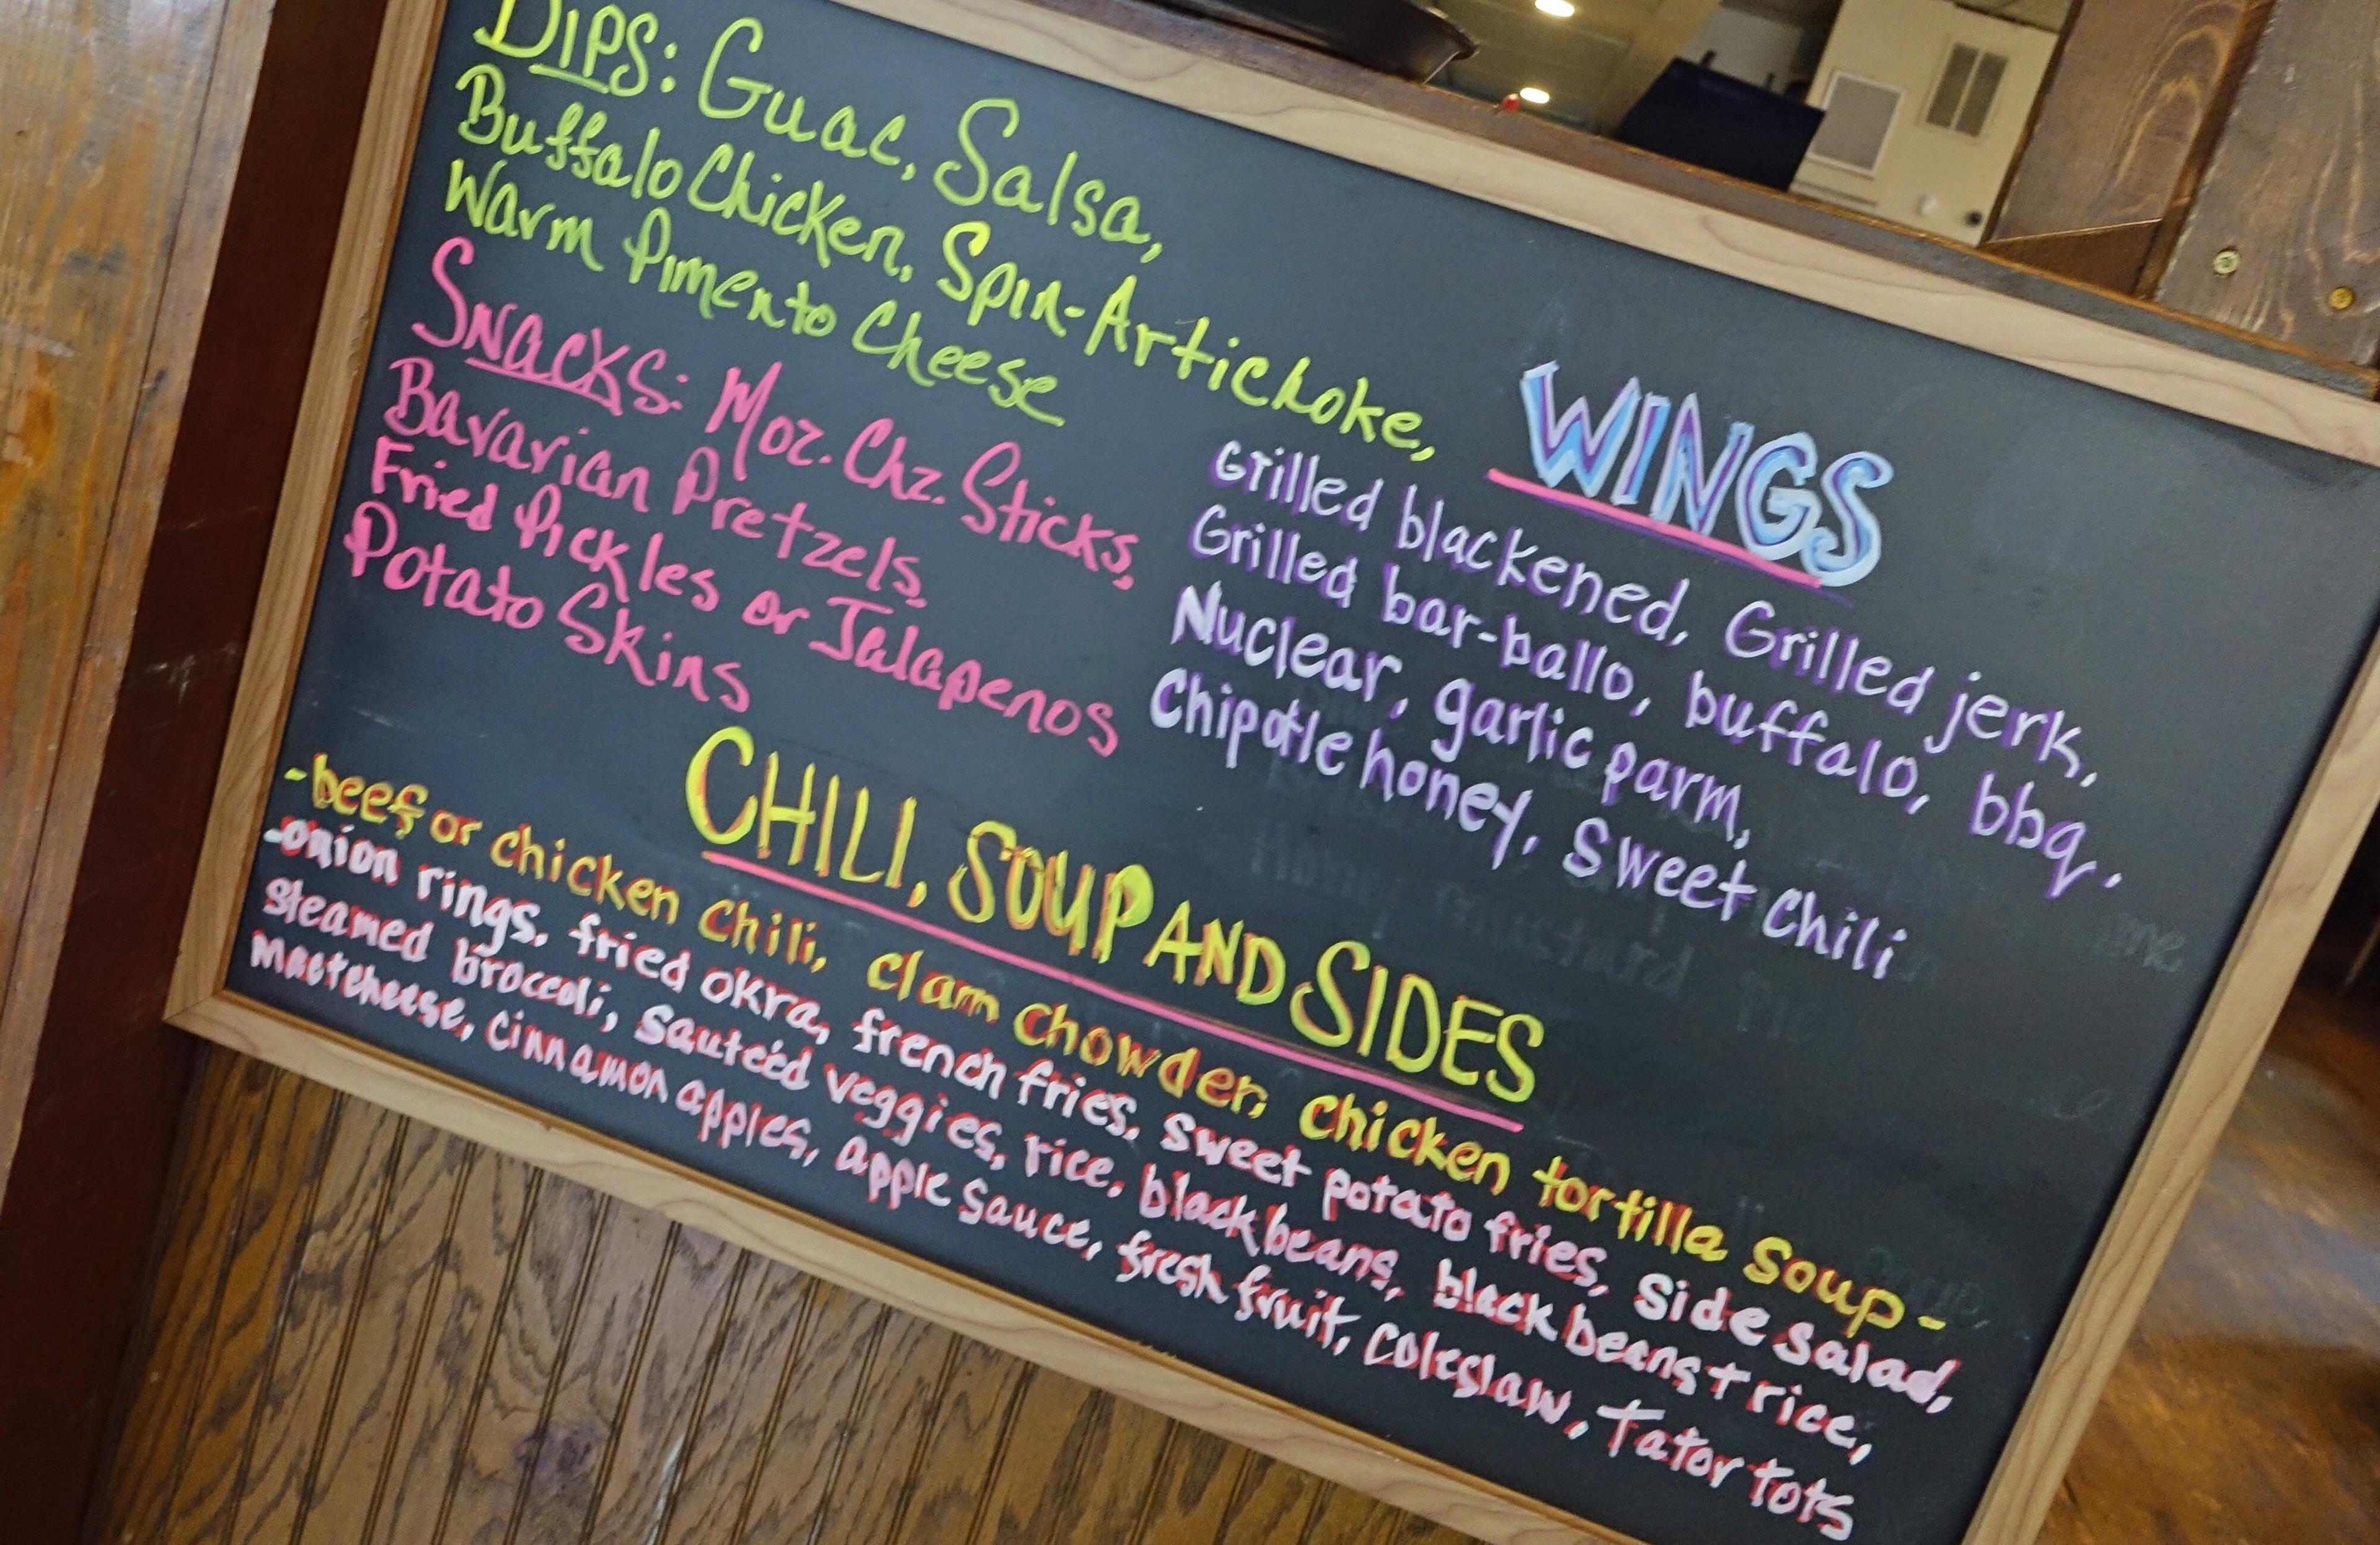 DIPS: Guac, Salsa,
Buffalo Chicken, Spin-Artichoke,
Warm Pimento Cheese
SNACKS: Moz. Chz. Sticks,
Bavarian Pretzels,
Fried Pickles or Jalapenos
Potato Skins
WINGS
Grilled blackened, Grilled jerk,
Grilled bar-ballo, buffalo, bbq,
Nuclear, garlic parm,
Chipotle honey, Sweet Chili
CHILI, SOUP AND SIDES
-beef or chicken chili, clam chowder, chicken tortilla soup-
-onion rings, fried okra, french fries, sweet potato fries, side salad,
steamed broccoli, sauteéd veggies, rice, black beans, black beans + rice,
mac+cheese, cinnamon apples, apple sauce, fresh fruit, coleslaw, Tator tots